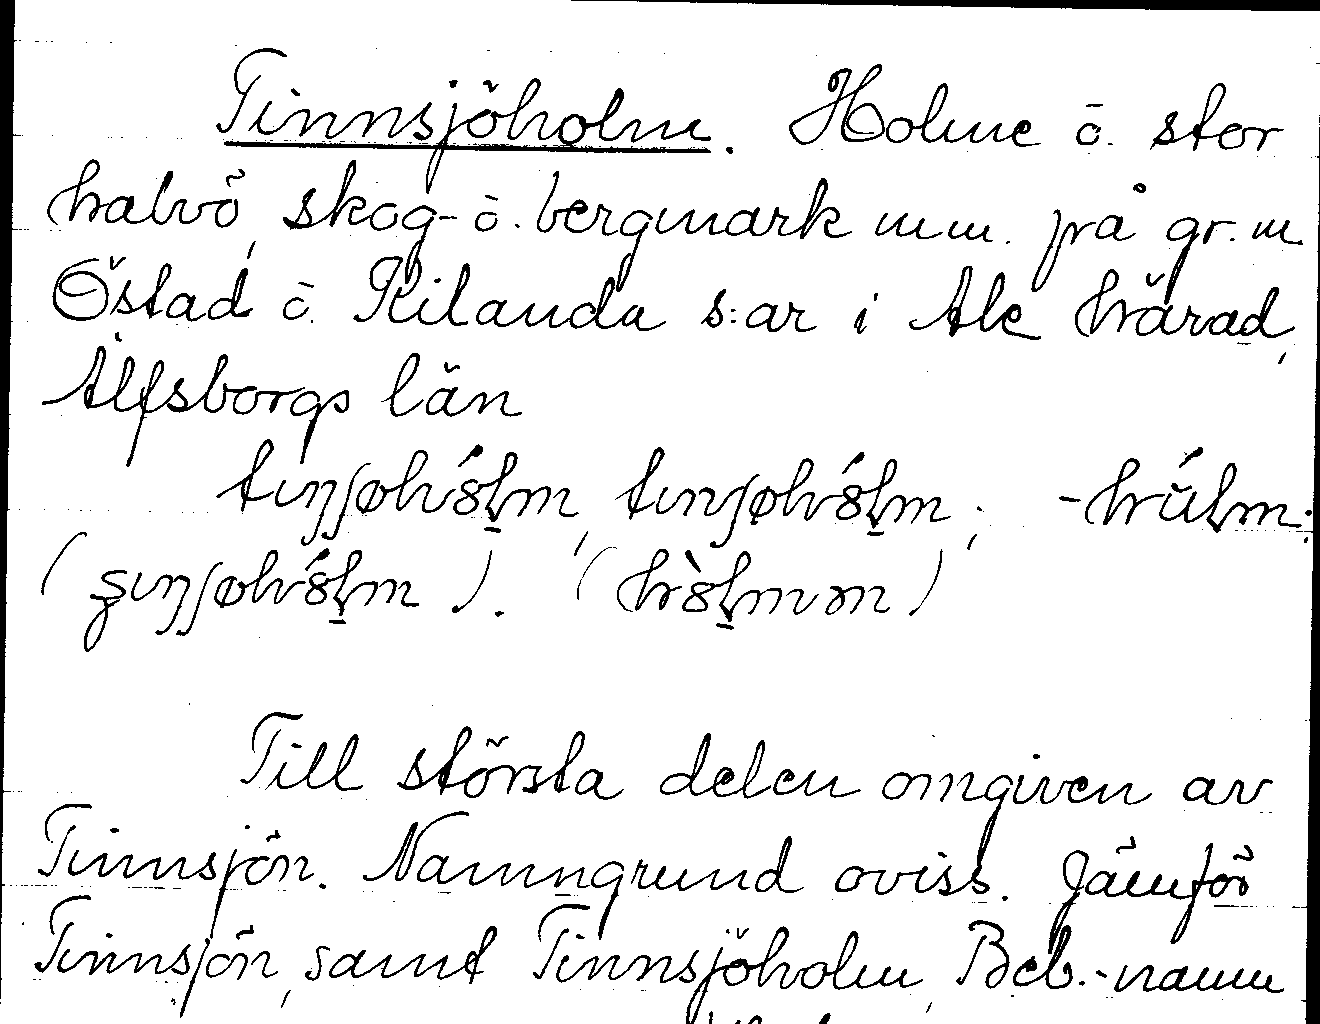 Tinnsjöholm. Holme o. stor
halvö, skog- o. bergmark m m. på gr. m.
Östad o. Kilanda s:ar i Ale härad,
Älfsborgs län

Till största delen omgiven av
Tinnsjön. Namngrund oviss. Jämför
Tinnsjön, samt Tinnsjöholm, Beb.-namn